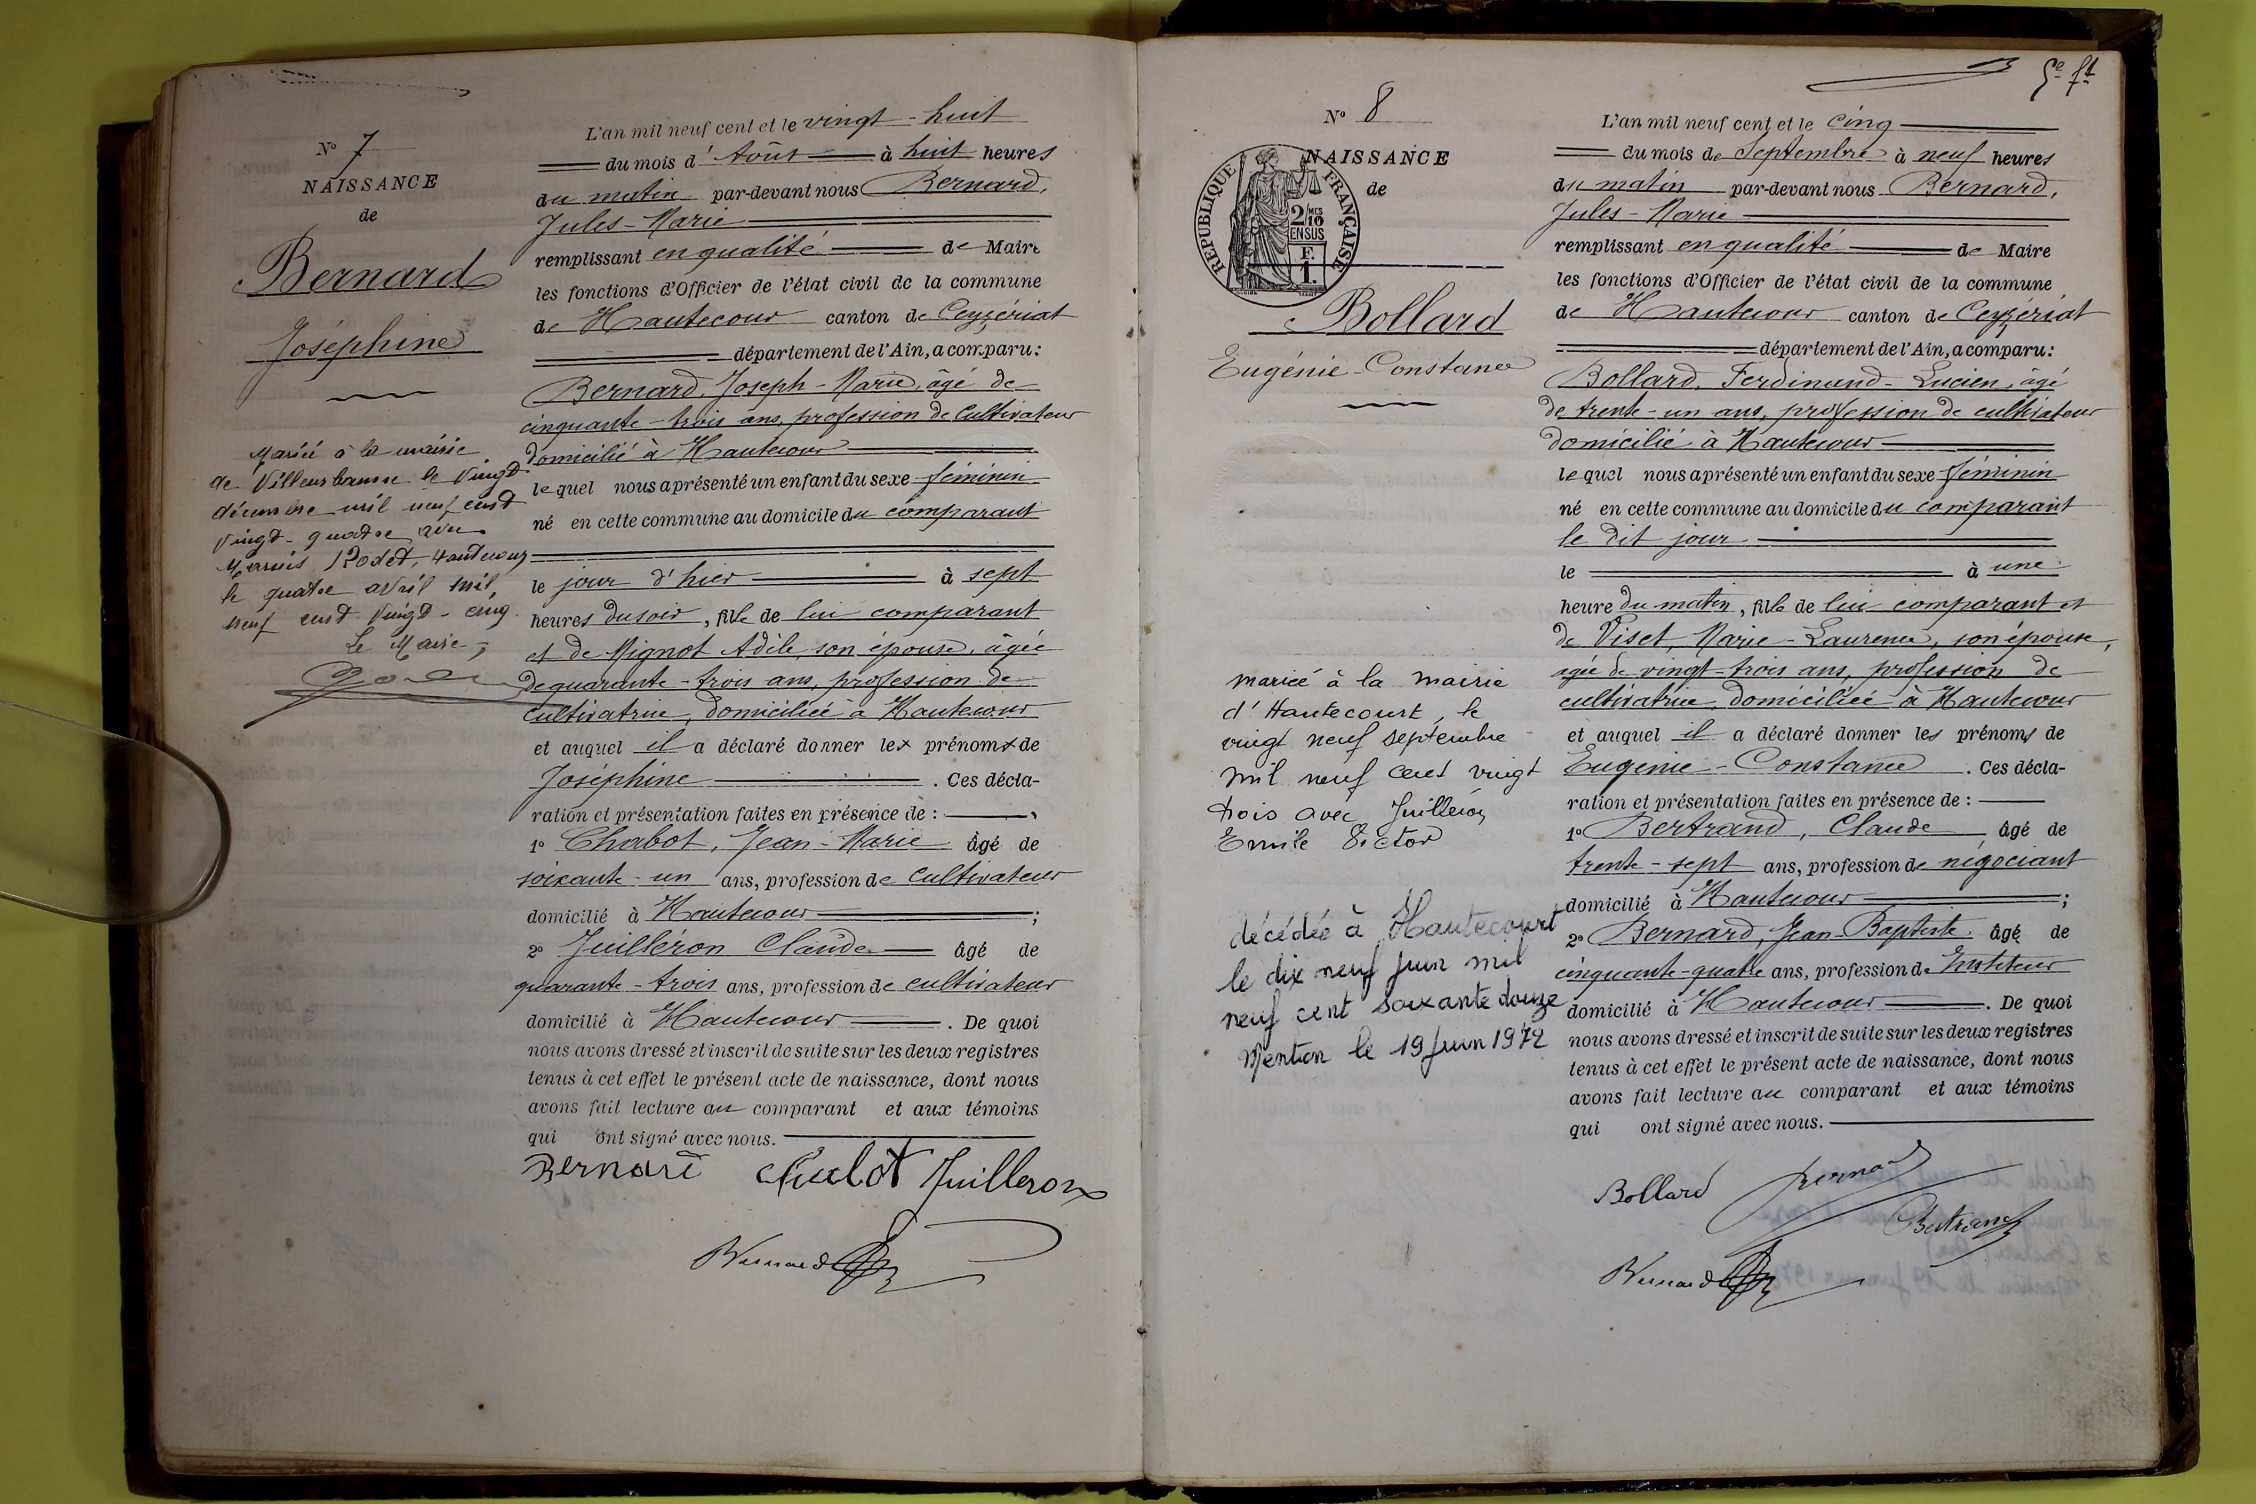 N° 7
NAISSANCE
de
Bernard
Joséphine
Mariée à la mairie
de Villeurbanne le vingt
décembre mil neuf cent
vingt-quatre avec
Rodet, Hautecour
le quatre avril mil
neuf cent vingt-cinq
Le Maire,
L'an mil neuf cent et le vingt-huit
du mois d'Août à huit heures
du matin par-devant nous Bernard,
Jules-Marie
remplissant en qualité de Maire
les fonctions d'Officier de l'état civil de la commune
de Hautecour canton de Ceyzériat
département de l'Ain, a comparu:
Bernard, Joseph-Marie, âgé de
cinquante-trois ans, profession de cultivateur
domicilié à Hautecour
lequel nous a présenté un enfant du sexe féminin
né en cette commune au domicile du comparant
le jour d'hier à sept
heures du soir, fille de lui comparant
et de Mignot Adèle, son épouse, âgée
de quarante-trois ans, profession de
cultivatrice, domiciliée à Hautecour
et auquel il a déclaré donner lex prénomx de
Joséphine. Ces décla-
ration et présentation faites en présence de :
1° Chabot, Jean-Marie âgé de
soixante-un ans, profession de cultivateur
domicilié à Hautecour ;
2° Juilléron Claude âgé de
quarante-trois ans, profession de cultivateur
domicilié à Hautecour. De quoi
nous avons dressé et inscrit de suite sur les deux registres
tenus à cet effet le présent acte de naissance, dont nous
avons fait lecture au comparant et aux témoins
qui ont signé avec nous.
Bernard Juilleron
Bernard
5e ft
N° 8
NAISSANCE
de
REPUBLIQUE FRANÇAISE
2/10 MES
EN SUS
F.
1.
Bollard
Eugénie-Constance
mariée à la mairie
d'Hautecourt, le
vingt neuf septembre
mil neuf cent vingt
trois avec Juilléron
Emile Victor
décédée à Hautecourt
le dix neuf juin mil
neuf cent soixante douze
Mention le 19 juin 1972
L'an mil neuf cent et le cinq
du mois de Septembre à neuf heures
du matin par-devant nous Bernard,
Jules-Marie
remplissant en qualité de Maire
les fonctions d'Officier de l'état civil de la commune
de Hautecour canton de Ceyzériat
département de l'Ain, a comparu:
Bollard, Ferdinand-Lucien, âgé
de trente-un ans, profession de cultivateur
domicilié à Hautecour
lequel nous a présenté un enfant du sexe féminin
né en cette commune au domicile du comparant
le dit jour
le à une
heure du matin, fille de lui comparant et
de Viset, Marie-Laurence, son épouse,
agée de vingt-trois ans, profession de
cultivatrice, domiciliée à Hautecour
et auquel il a déclaré donner les prénoms de
Eugénie-Constance. Ces décla-
ration et présentation faites en présence de :
1° Bertrand, Claude âgé de
trente-sept ans, profession de négociant
domicilié à Hautecour ;
2° Bernard, Jean-Baptiste. âgé de
cinquante-quatre ans, profession de Instituteur
domicilié à Hautecour. De quoi
nous avons dressé et inscrit de suite sur les deux registres
tenus à cet effet le présent acte de naissance, dont nous
avons fait lecture au comparant et aux témoins
qui ont signé avec nous.
Bollard Bernard
Bertrand
Bernard